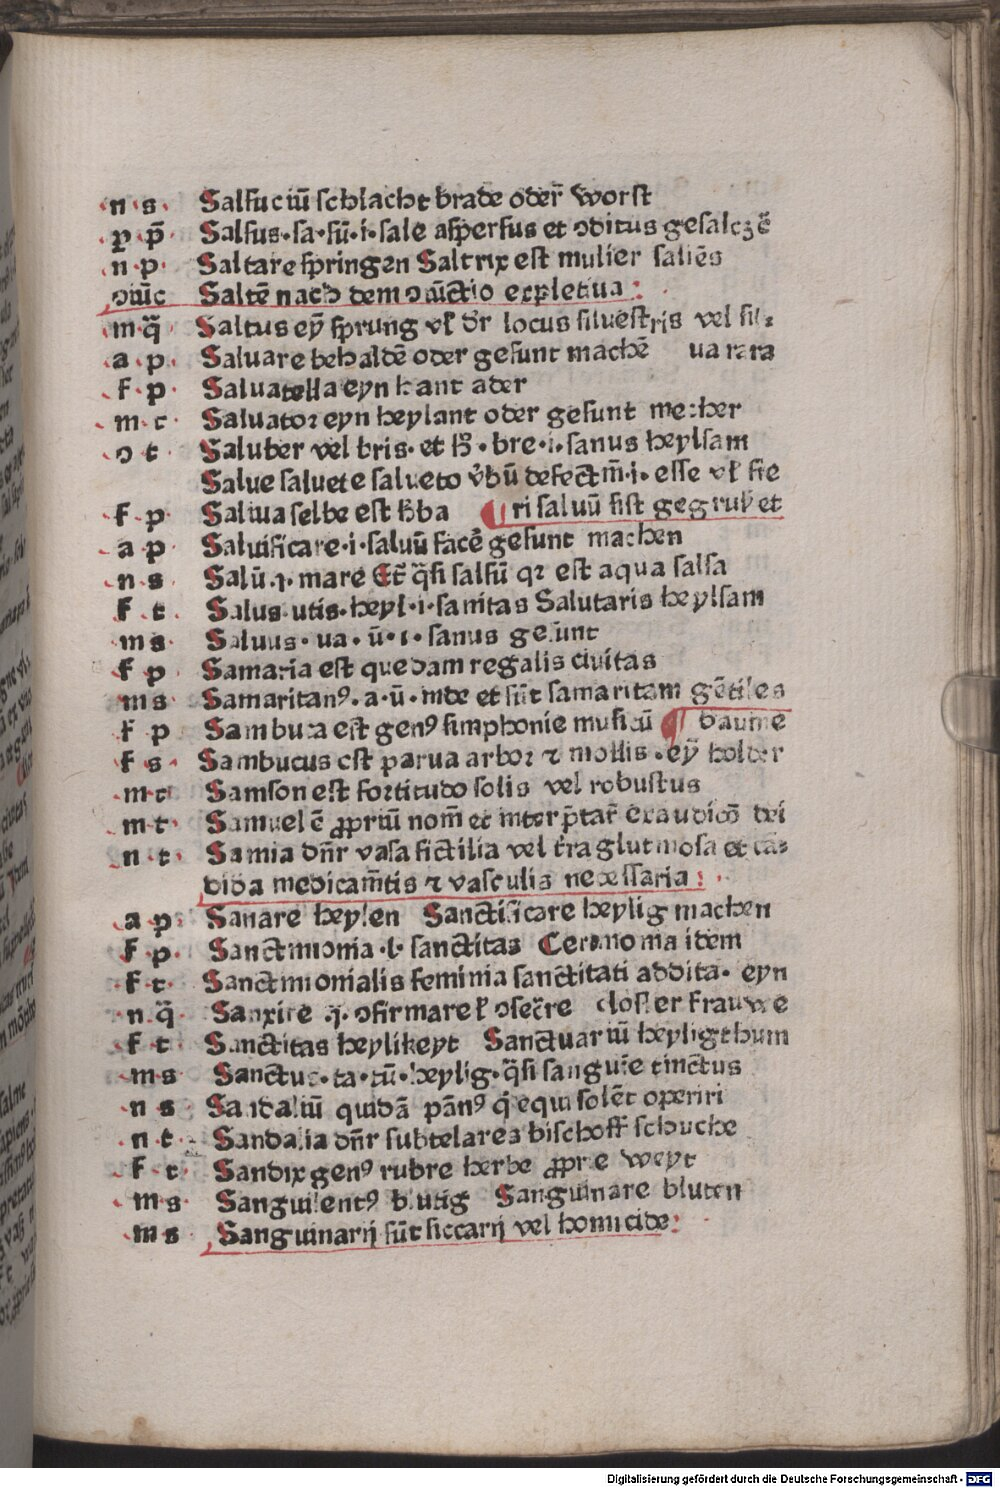 n s Salsuciū schlacht brade oder̄ worst
ꝑ p̄ Salsus·sa·sū·i·sale aspersus et ↄditus gesalczē
n p Saltare springen Saltrix est mulier saliēs
ↄiūc Saltē nach dem ↄiūctio expletiua:
m q̄ Saltus eȳ sprung vl̄ dr̄ locus siluestris vel sil⸗
a p Saluare behaldē oder gesunt machē uarara
f p Saluatella eyn hant ader
m c Saluator eyn heylant oder gesunt mecher
ↄ t Saluber vel bris·et hͦ·bre·i·sanus heylsam
Salue saluete salueto v̄bū defectm̄·i·esse vl̄ fie
f p Saliua selbe est h̄ba ¶ ri saluū sist gegrusz et
a p Saluificare·i·saluū facē gesunt machen
n s Salū·i·mare Et̄ q̄si salsū qꝛ est aqua salsa
f t Salus utis·heyl·i·sanitas Salutaris heylsam
m s Saluus·ua·ū·i·sanus gesunt
f p Samaria est quedam regalis ciuitas
m s Samaritanꝰ·a·ū·inde et sūt samaritam gētiles
f p Sambuca est genꝰ simphonie musicū ¶ baume
f s Sambucus est parua arbor ⁊ mollis·eȳ holder
m c Samson est fortitudo solis vel robustus
m t Samuel ē ꝓpriū nom̄ et inter p̄tat̄ exaudicō dei
n t Samia dn̄r vasa fictilia vel t̄ra glutinosa et cā⸗
dida medicam̄tis ⁊ vasculis necessaria:
a p Sanare heylen Sanctificare heylig machen
f p Sanctimonia·l·sanctitas Cerimonia idem
f t Sanctimonialis feminia sanctitati addita· eyn
n q̄ Sanxire ·i·ↄfirmare l̄ ↄsecr̄re closter frauwe
f t Sanctitas heylikeyt Sanctuariū heyligthum
m s Sanctus·ta·tū·heylig·q̄si sanguīe tinctus
n s Sandaliū quidā pānꝰ q̄ equi solēt operiri
n t Sandalia dn̄r subtelarea bischoff schuche
f t Sandix genꝰ rubre herbe ꝓprie weyt
m s Sanguilentꝰ blutig Sanguinare bluten
m s Sanguinarij sūt siccarij vel homicide:
Digitalisierung gefördert durch die Deutsche Forschungsgemeinschaft - DFG